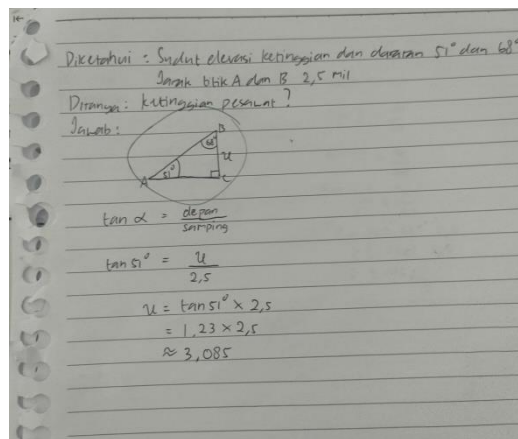 Diketahui : Sudut elevasi ketinggian dan dataran 51° dan 68°
Jarak titik A dan B 2,5 mil
Ditanya : ketinggian pesawat ?
Jawab :
B
68°
u
A
51°
C
tan α = depan / samping
tan 51° = u / 2,5
u = tan 51° × 2,5
= 1,23 × 2,5
≈ 3,085